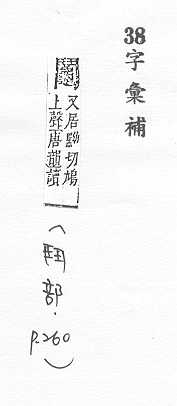 38字彙補
又居黝切鳩
上聲唐韻讀
(鬥部.
p.260)